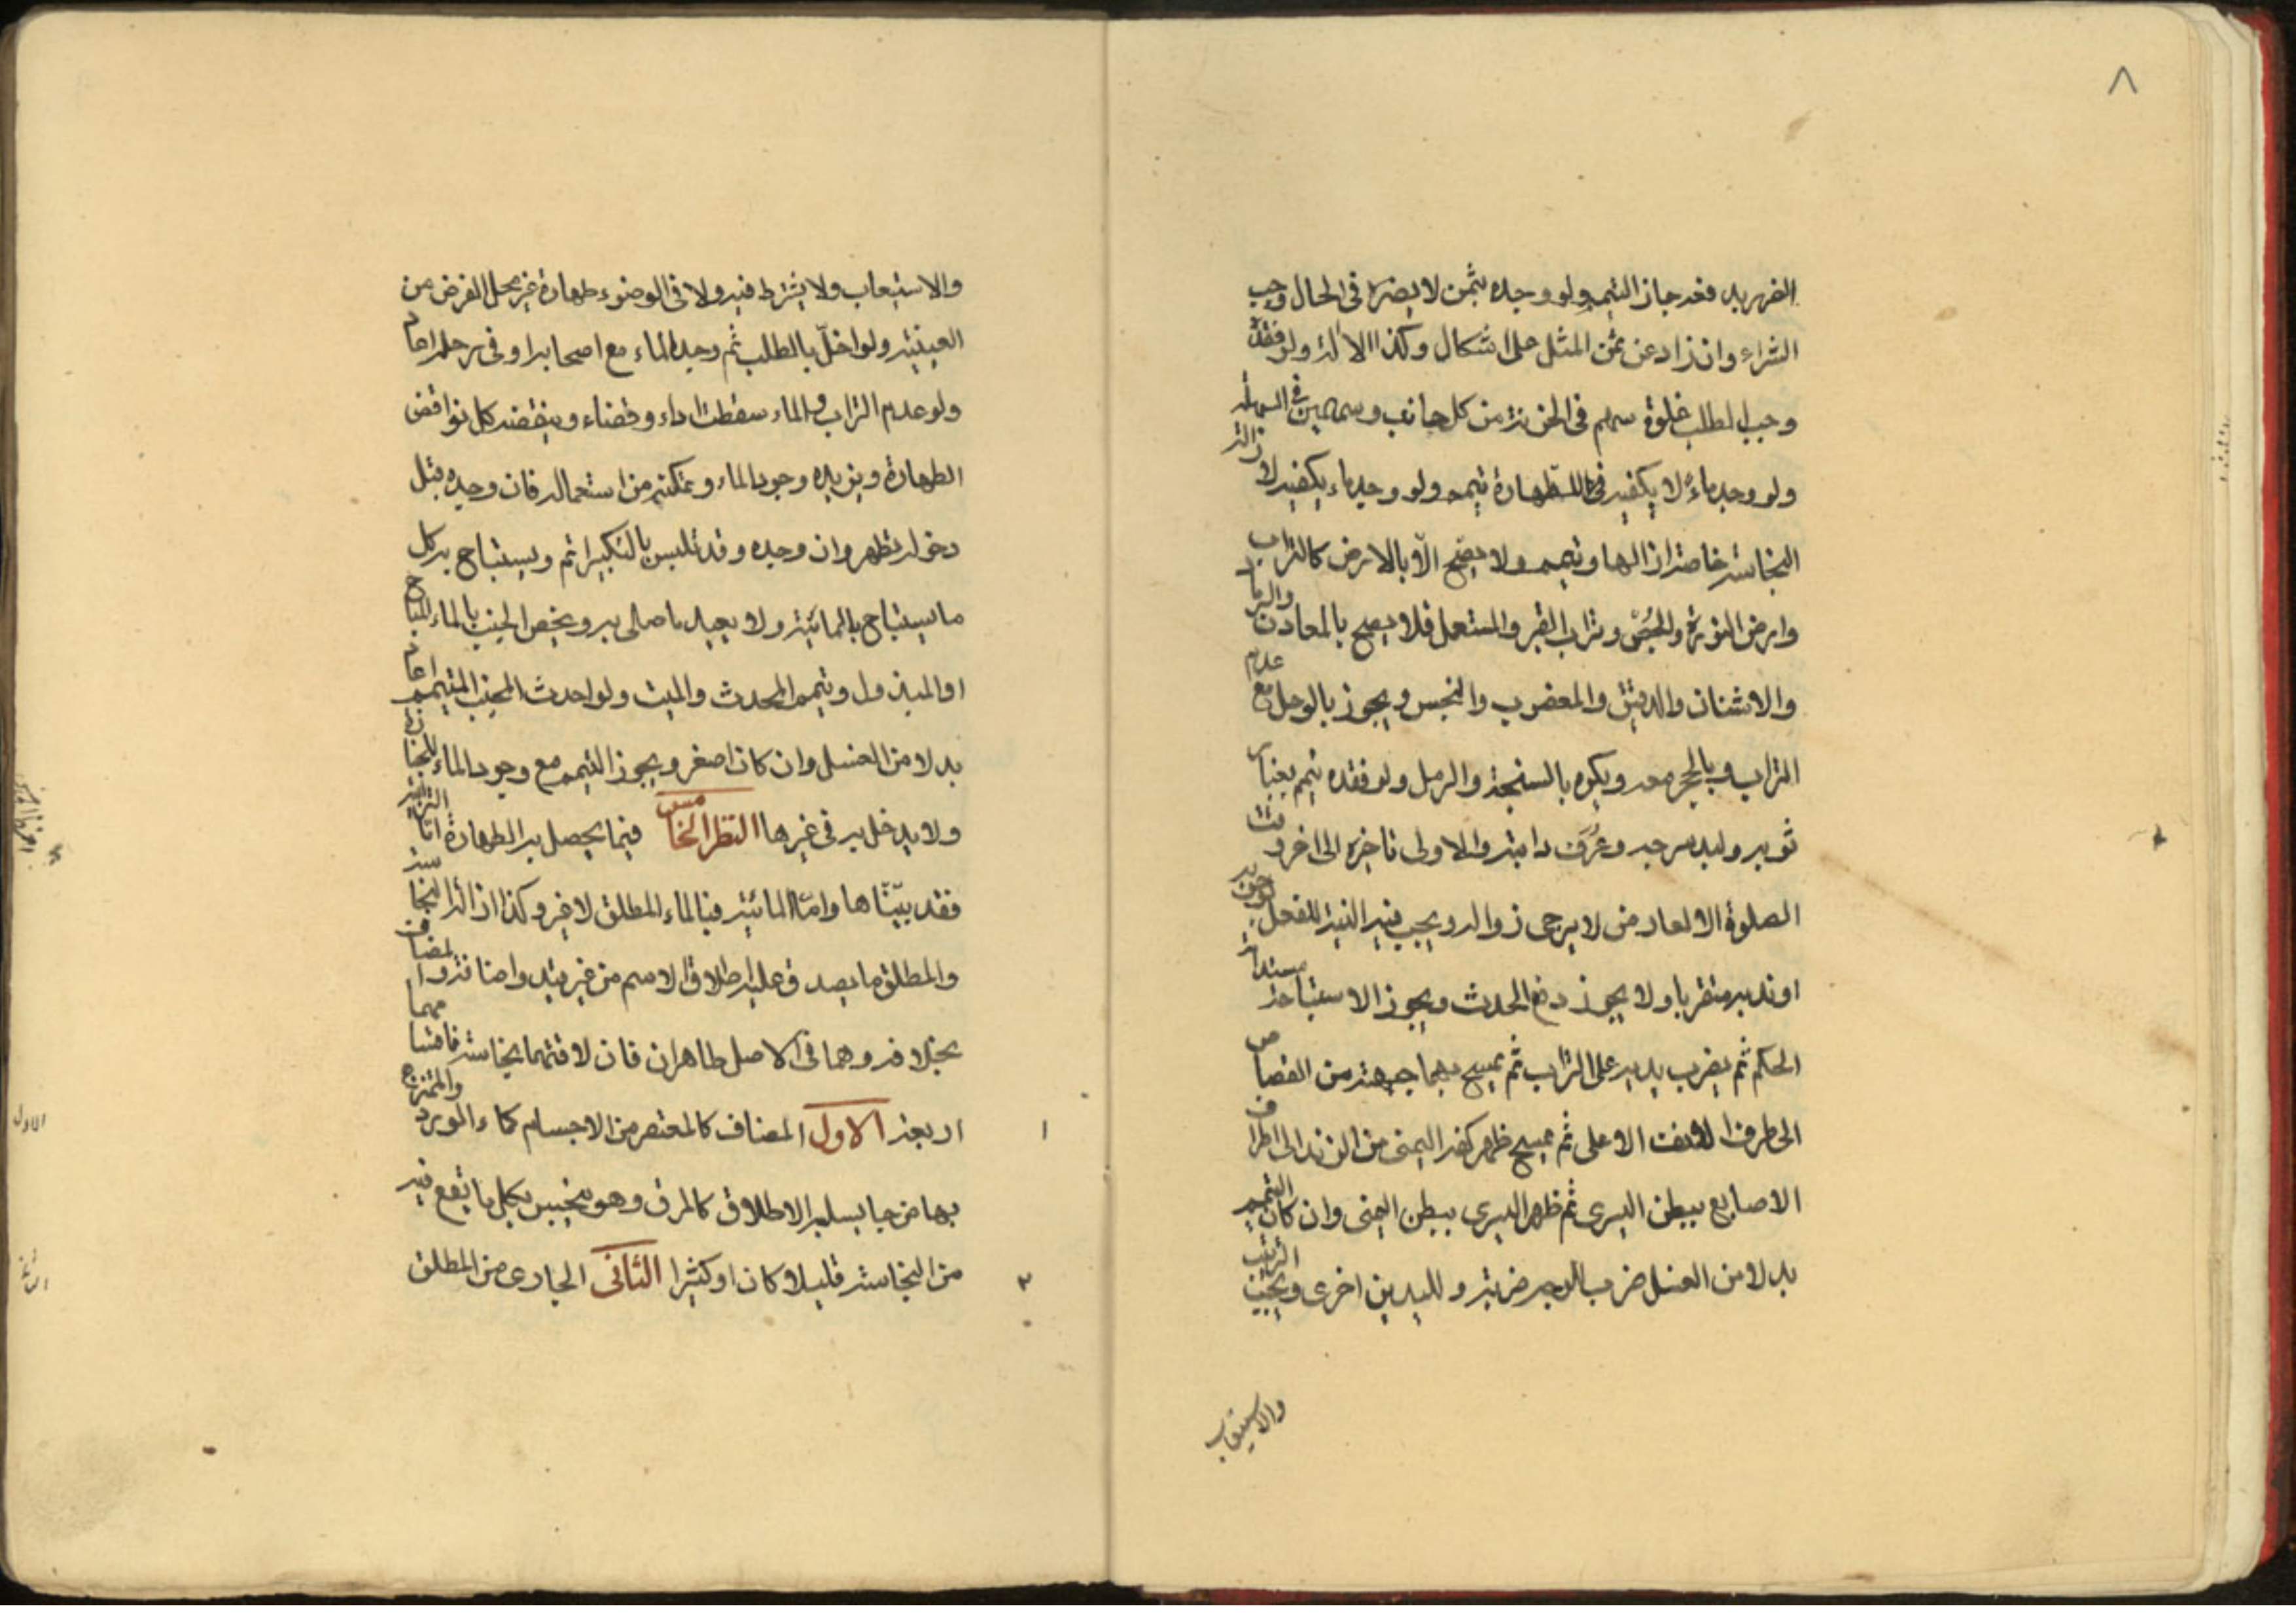 ٨
الضرر به فقد جاز التيمم ولو وجده بثمن لا يضره فى الحال وجب
الشراء وان زاد عن ثمن المثل على اشكال وكذا الالة ولو فقده
وجب الطلب غلوة سهم فى الحزنة من كل جانب وسهمين فى السهلة
ولو وجد ماءً لا يكفيه فى الطهارة تيمم ولو وجد ماء يكفيه لازالة
النجاسة خاصة ازالها وتيمم ولا يصح الّا بالارض كالتراب
وارض النورة والجُصّ وتراب القبر والمستعمل فلا يصح بالمعادن والرماد
والاشنان والدقيق والمغصوب والنجس ويجوز بالوحل مع عدم
التراب وبالحجر معه ويكره بالسبخة والرمل ولو فقده تيمم بغبار
ثوبه ولبد سرجه وعُرف دابته والاولى تاخيره الى اخر وقت
الصلوة الا لعارض لا يرجى زواله ويجب فيه النية للفعل لوجوبه
او ندبه متقربا ولا يجوز رفع الحدث ويجوز الاستباحة مستدامة
الحكم ثم يضرب بيديه على التراب ثم يمسح بهما جبهته من القصاص
الى طرف الانف الاعلى ثم يمسح ظهر كفه اليمنى من الزند الى اطراف
الاصابع ببطن اليسرى ثم ظهر اليسرى ببطن اليمنى وان كان التيمم
بدلا من الغسل ضرب للوجه ضربة ولليدين اخرى ويجب الترتيب
والاستيعاب
والاستيعاب ولا يشترط فيه ولا فى الوضوء طهارة غير محل الفرض من
العينية ولو اخلّ بالطلب ثم وجد الماء مع اصحابه او فى رحله اعاد
ولو عدم التراب والماء سقطت اداء وقضاء وينقضه كل نواقض
الطهارة ويزيده وجود الماء وتمكنه من استعماله فان وجده قبل
دخوله تطهر وان وجده وقد تلبس بالتكبير اتم ويستباح به كل
ما يستباح بالمائية ولا يعيد ما صلى به ويخص الجنب بالماء المباح
او المبذول ويتيمم المحدث والميت ولو احدث المجنب المتيمم اعاد
بدلا من الغسل وان كان اصغر ويجوز التيمم مع وجود الماء للجنازة
ولا يدخل به فى غيرها النظر الخامس فيما يحصل به الطهارة اما الترابية
فقد بيّنّاها وامّا المائية فبالماء المطلق لا غير وكذا ازالة النجاسة
والمطلق ما يصدق عليه اطلاق الاسم من غير قيد واضافة والمضاف
بخلافه وهما فى الاصل طاهران فان لاقتهما نجاسة فاقسامهما
اربعة الاول المضاف كالمعتصر من الاجسام كماء الورد والممتزج
بها مزجا يسلبه الاطلاق كالمرق وهو ينجس بكل ما يقع فيه
من النجاسة قليلا كان او كثيرا الثانى الجارى من المطلق
١
٢
الاول